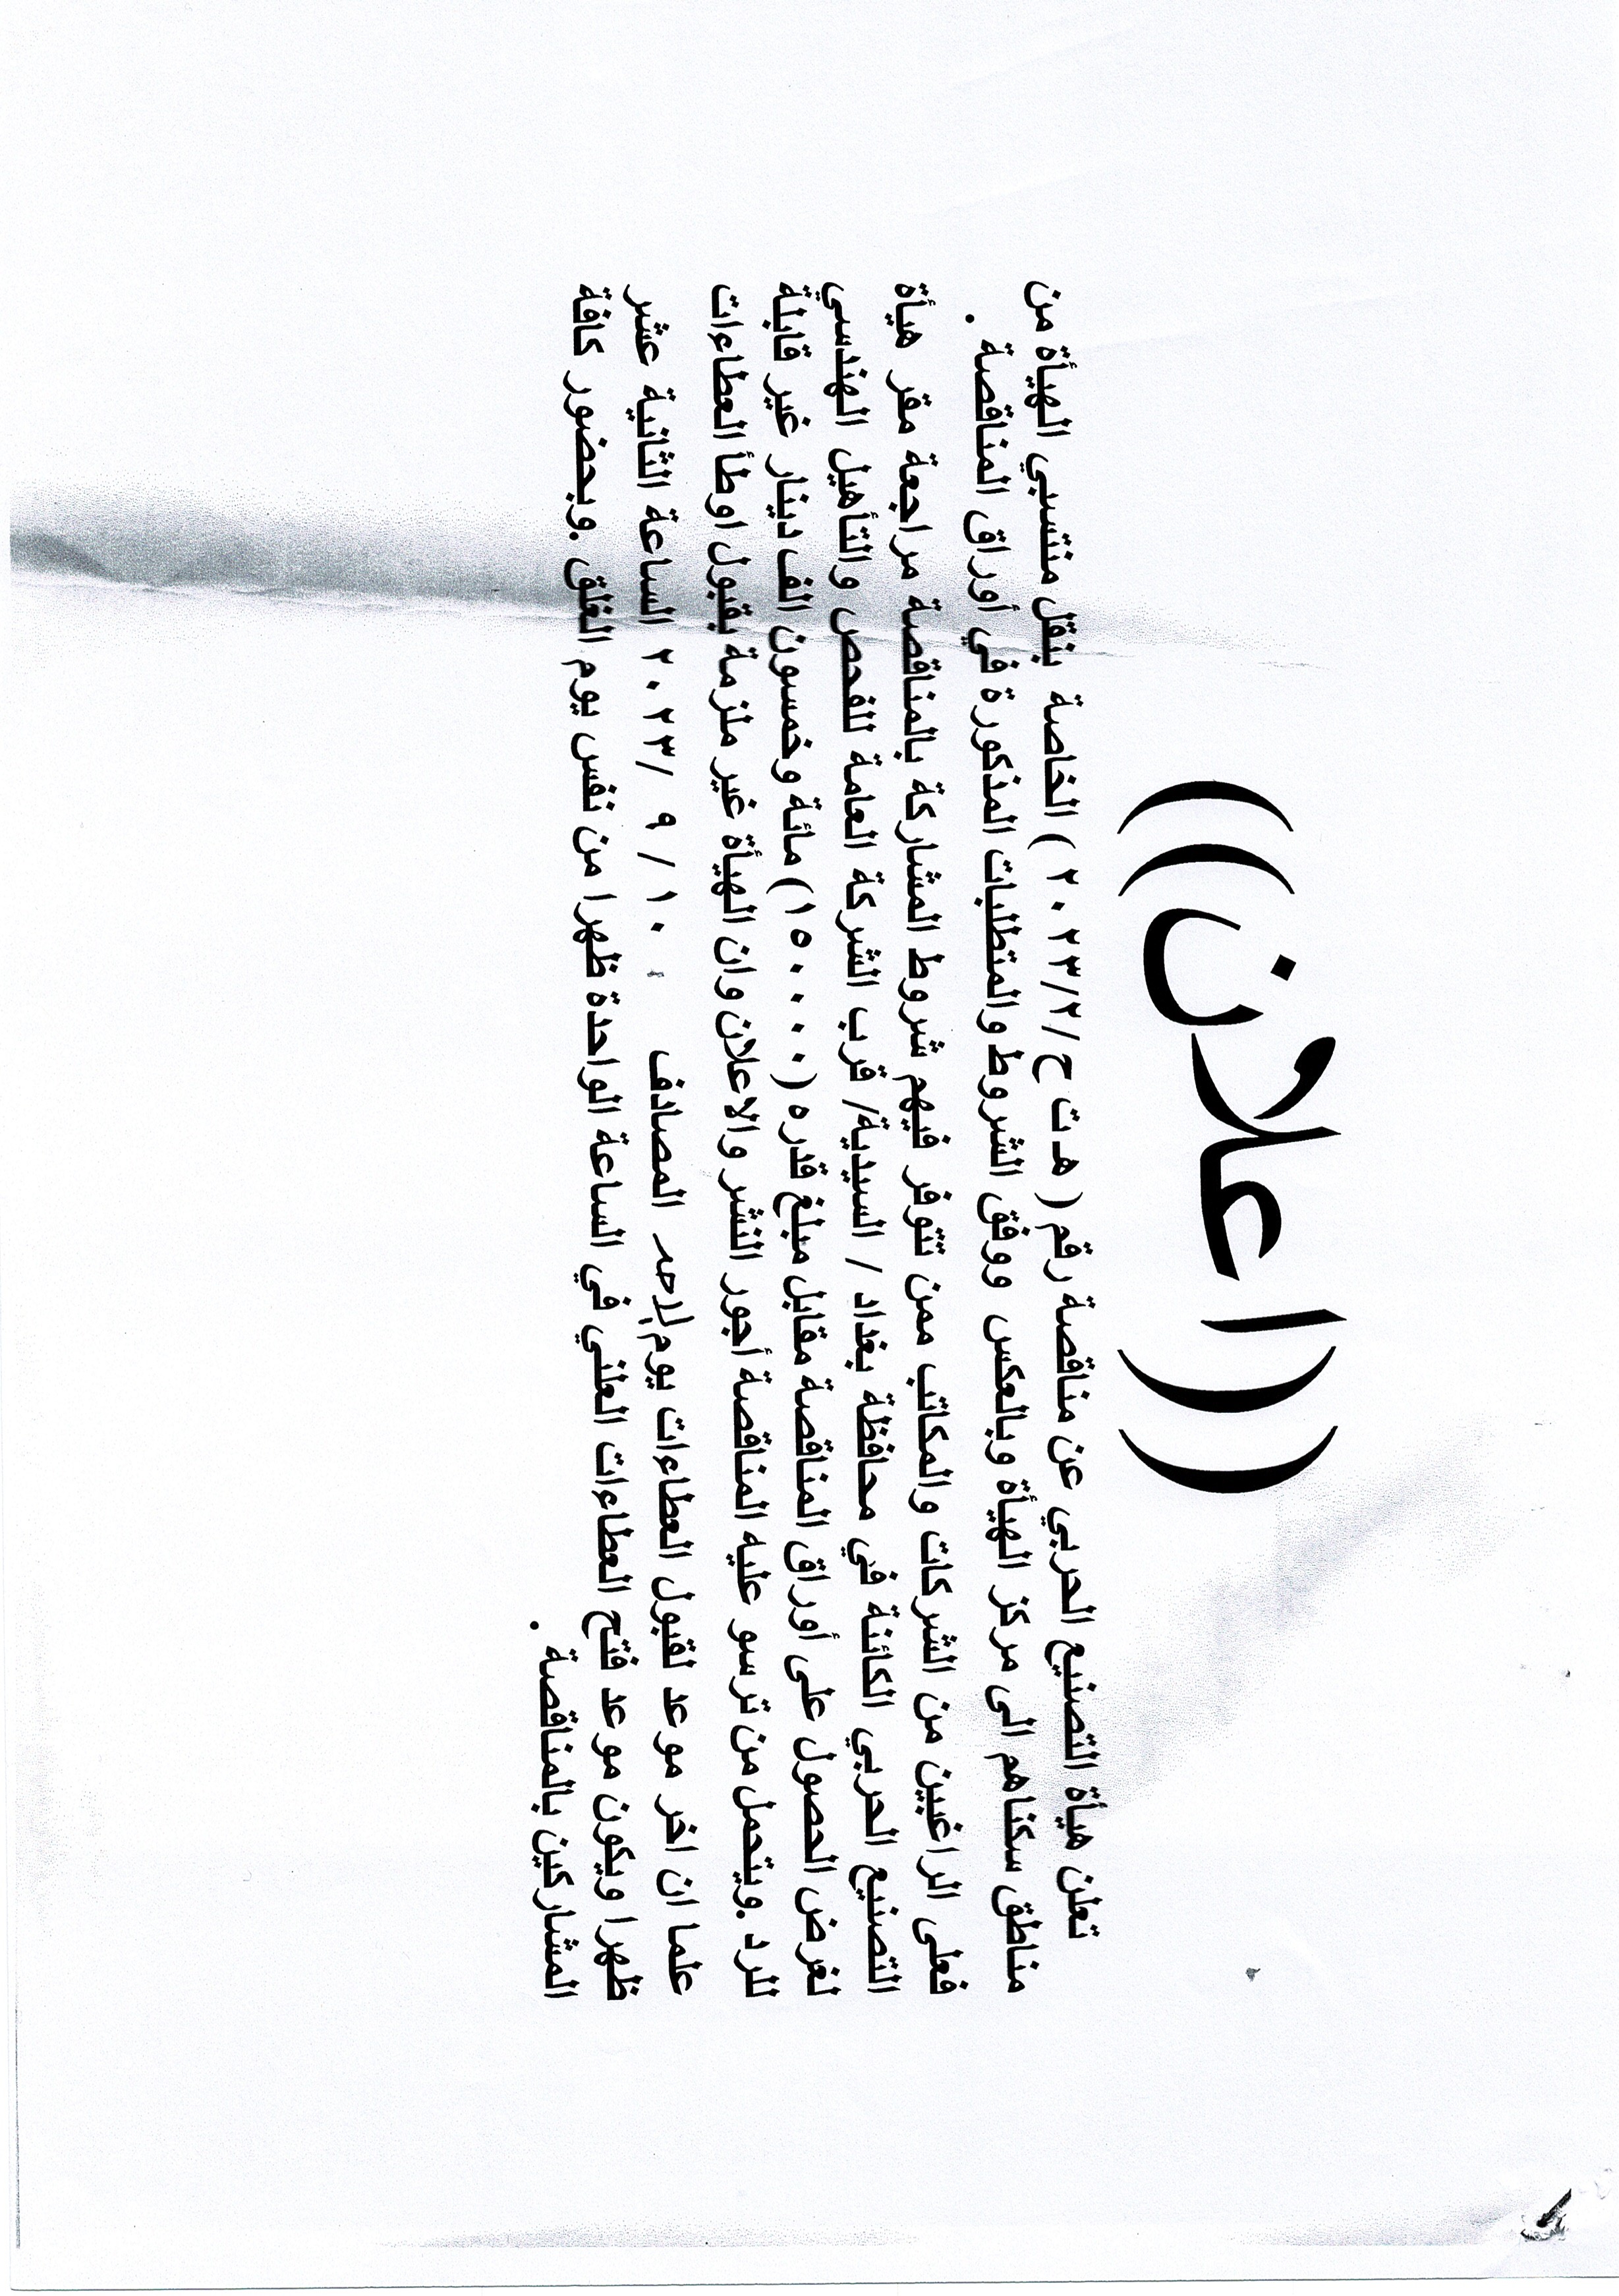 ((اعلان))
تعلن هيأة التصنيع الحربي عن مناقصة رقم ( هـ ت ح/٢٠٢٣/٢ ) الخاصة بنقل منتسبي الهيأة من
مناطق سكناهم الى مركز الهيأة وبالعكس ووفق الشروط والمتطلبات المذكورة في أوراق المناقصة .
فعلى الراغبين من الشركات والمكاتب ممن تتوفر فيهم شروط المشاركة بالمناقصة مراجعة مقر هيأة
التصنيع الحربي الكائنة في محافظة بغداد / السيدية/ قرب الشركة العامة للفحص والتأهيل الهندسي
لغرض الحصول على أوراق المناقصة مقابل مبلغ قدره (١٥٠٠٠٠) مائة وخمسون الف دينار غير قابلة
للرد .ويتحمل من ترسو عليه المناقصة أجور النشر والاعلان وان الهيأة غير ملزمة بقبول اوطأ العطاءات
علما ان اخر موعد لقبول العطاءات يوم الاحد المصادف ١٠ / ٩ /٢٠٢٣ الساعة الثانية عشر
ظهرا ويكون موعد فتح العطاءات العلني في الساعة الواحدة ظهرا من نفس يوم الغلق .وبحضور كافة
المشاركين بالمناقصة .